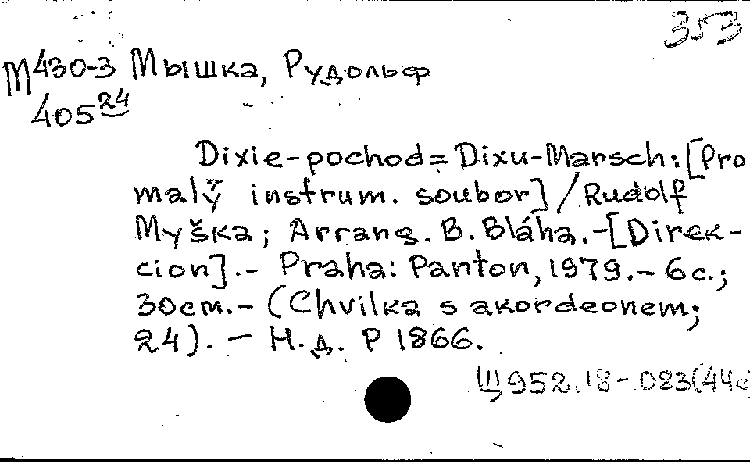 353
М430-3 Мышка, Рудольф
405 24
Dixie-pochod = Dixu-Marsch: [Pro
malý instrum. soubor] / Rudolf
Myška; Arrang. B. Bláha. - [Direk-
cion]. - Praha: Panton, 1979. - 6 с.;
30 cm. - (Chvilka s akordeonem;
24). - Н. д. P 1866.
Щ952.18-083(44е)